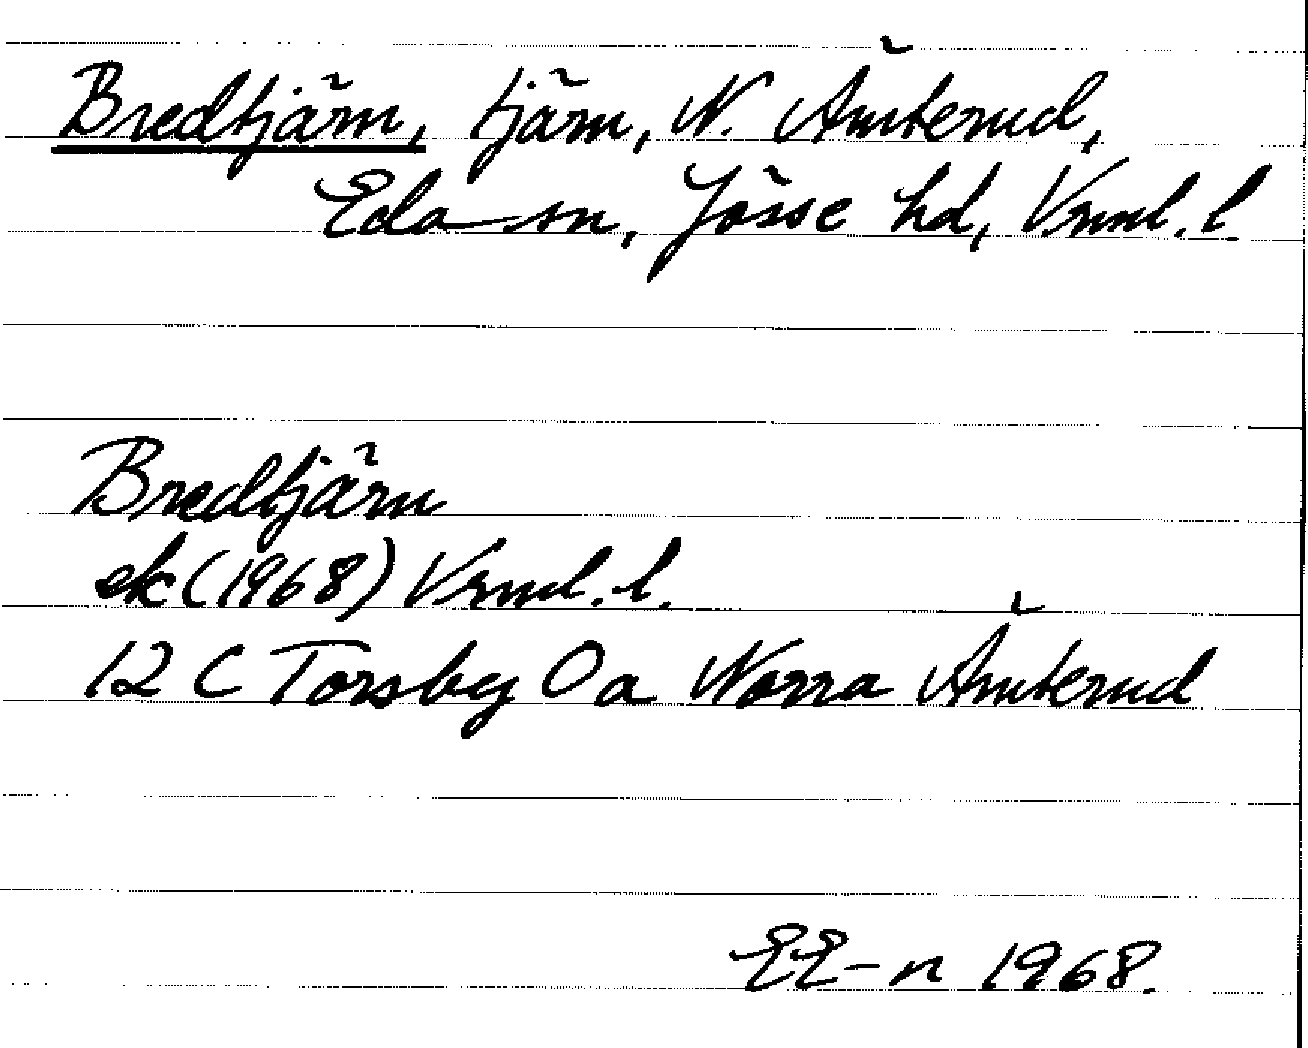 Bredtjärn, tjärn, N. Ämterud,
Eda sn, Jösse hd, Vrml. l.
Bredtjärn
ek (1968) Vrml. l.
12 C Torsby 0a Norra Ämterud
EE-n 1968.